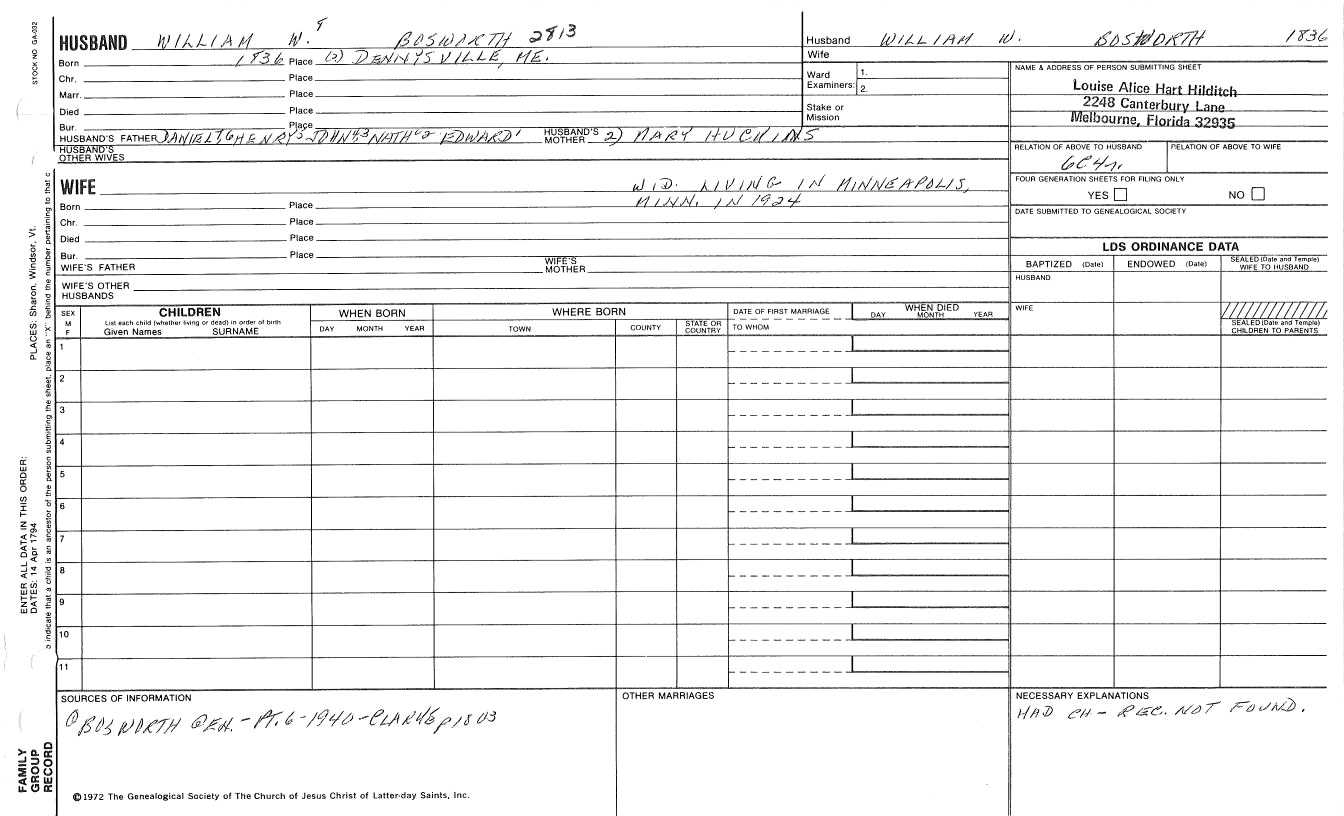 STOCK NO GA-032
HUSBAND WILLIAM W. 9 BOSWORTH 2813
Born 1836 Place (2) DENNYSVILLE, ME.
Chr. Place
Marr. Place
Died Place
Bur. Place
HUSBAND'S FATHER DANIEL7, 6HENRY5 JOHN4,3 NATH'L2 EDWARD1 HUSBAND'S MOTHER 2) MARY HUCKINS
HUSBAND'S OTHER WIVES
Husband WILLIAM W. BOSWORTH 1836
Wife
Ward Examiners: 1.
2.
Stake or Mission
NAME & ADDRESS OF PERSON SUBMITTING SHEET
Louise Alice Hart Hilditch
2248 Canterbury Lane
Melbourne, Florida 32935
RELATION OF ABOVE TO HUSBAND RELATION OF ABOVE TO WIFE
6C4r.
FOUR GENERATION SHEETS FOR FILING ONLY
YES NO
DATE SUBMITTED TO GENEALOGICAL SOCIETY
WIFE WID. LIVING IN MINNEAPOLIS,
MINN. IN 1924
Born Place
Chr. Place
Died Place
Bur. Place
WIFE'S FATHER WIFE'S MOTHER
WIFE'S OTHER HUSBANDS
LDS ORDINANCE DATA
BAPTIZED (Date) ENDOWED (Date) SEALED (Date and Temple) WIFE TO HUSBAND
HUSBAND
WIFE
SEALED (Date and Temple) CHILDREN TO PARENTS
SEX M F
CHILDREN
List each child (whether living or dead) in order of birth
Given Names SURNAME
WHEN BORN
DAY MONTH YEAR
WHERE BORN
TOWN COUNTY STATE OR COUNTRY
DATE OF FIRST MARRIAGE
TO WHOM
WHEN DIED
DAY MONTH YEAR
1
2
3
4
5
6
7
8
9
10
11
SOURCES OF INFORMATION
BOSWORTH GEN. - PT. 6 - 1940 - CLARKE p1803
OTHER MARRIAGES
NECESSARY EXPLANATIONS
HAD CH - REC. NOT FOUND.
©1972 The Genealogical Society of The Church of Jesus Christ of Latter-day Saints, Inc.
FAMILY GROUP RECORD
ENTER ALL DATA IN THIS ORDER:
DATES: 14 Apr 1794
PLACES: Sharon, Windsor, Vt.
o indicate that a child is an ancestor of the person submitting the sheet, place an "X" behind the number pertaining to that c